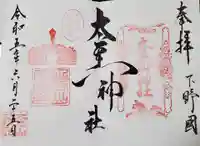 奉拝 下野國
太平山神社
令和五年六月二五日